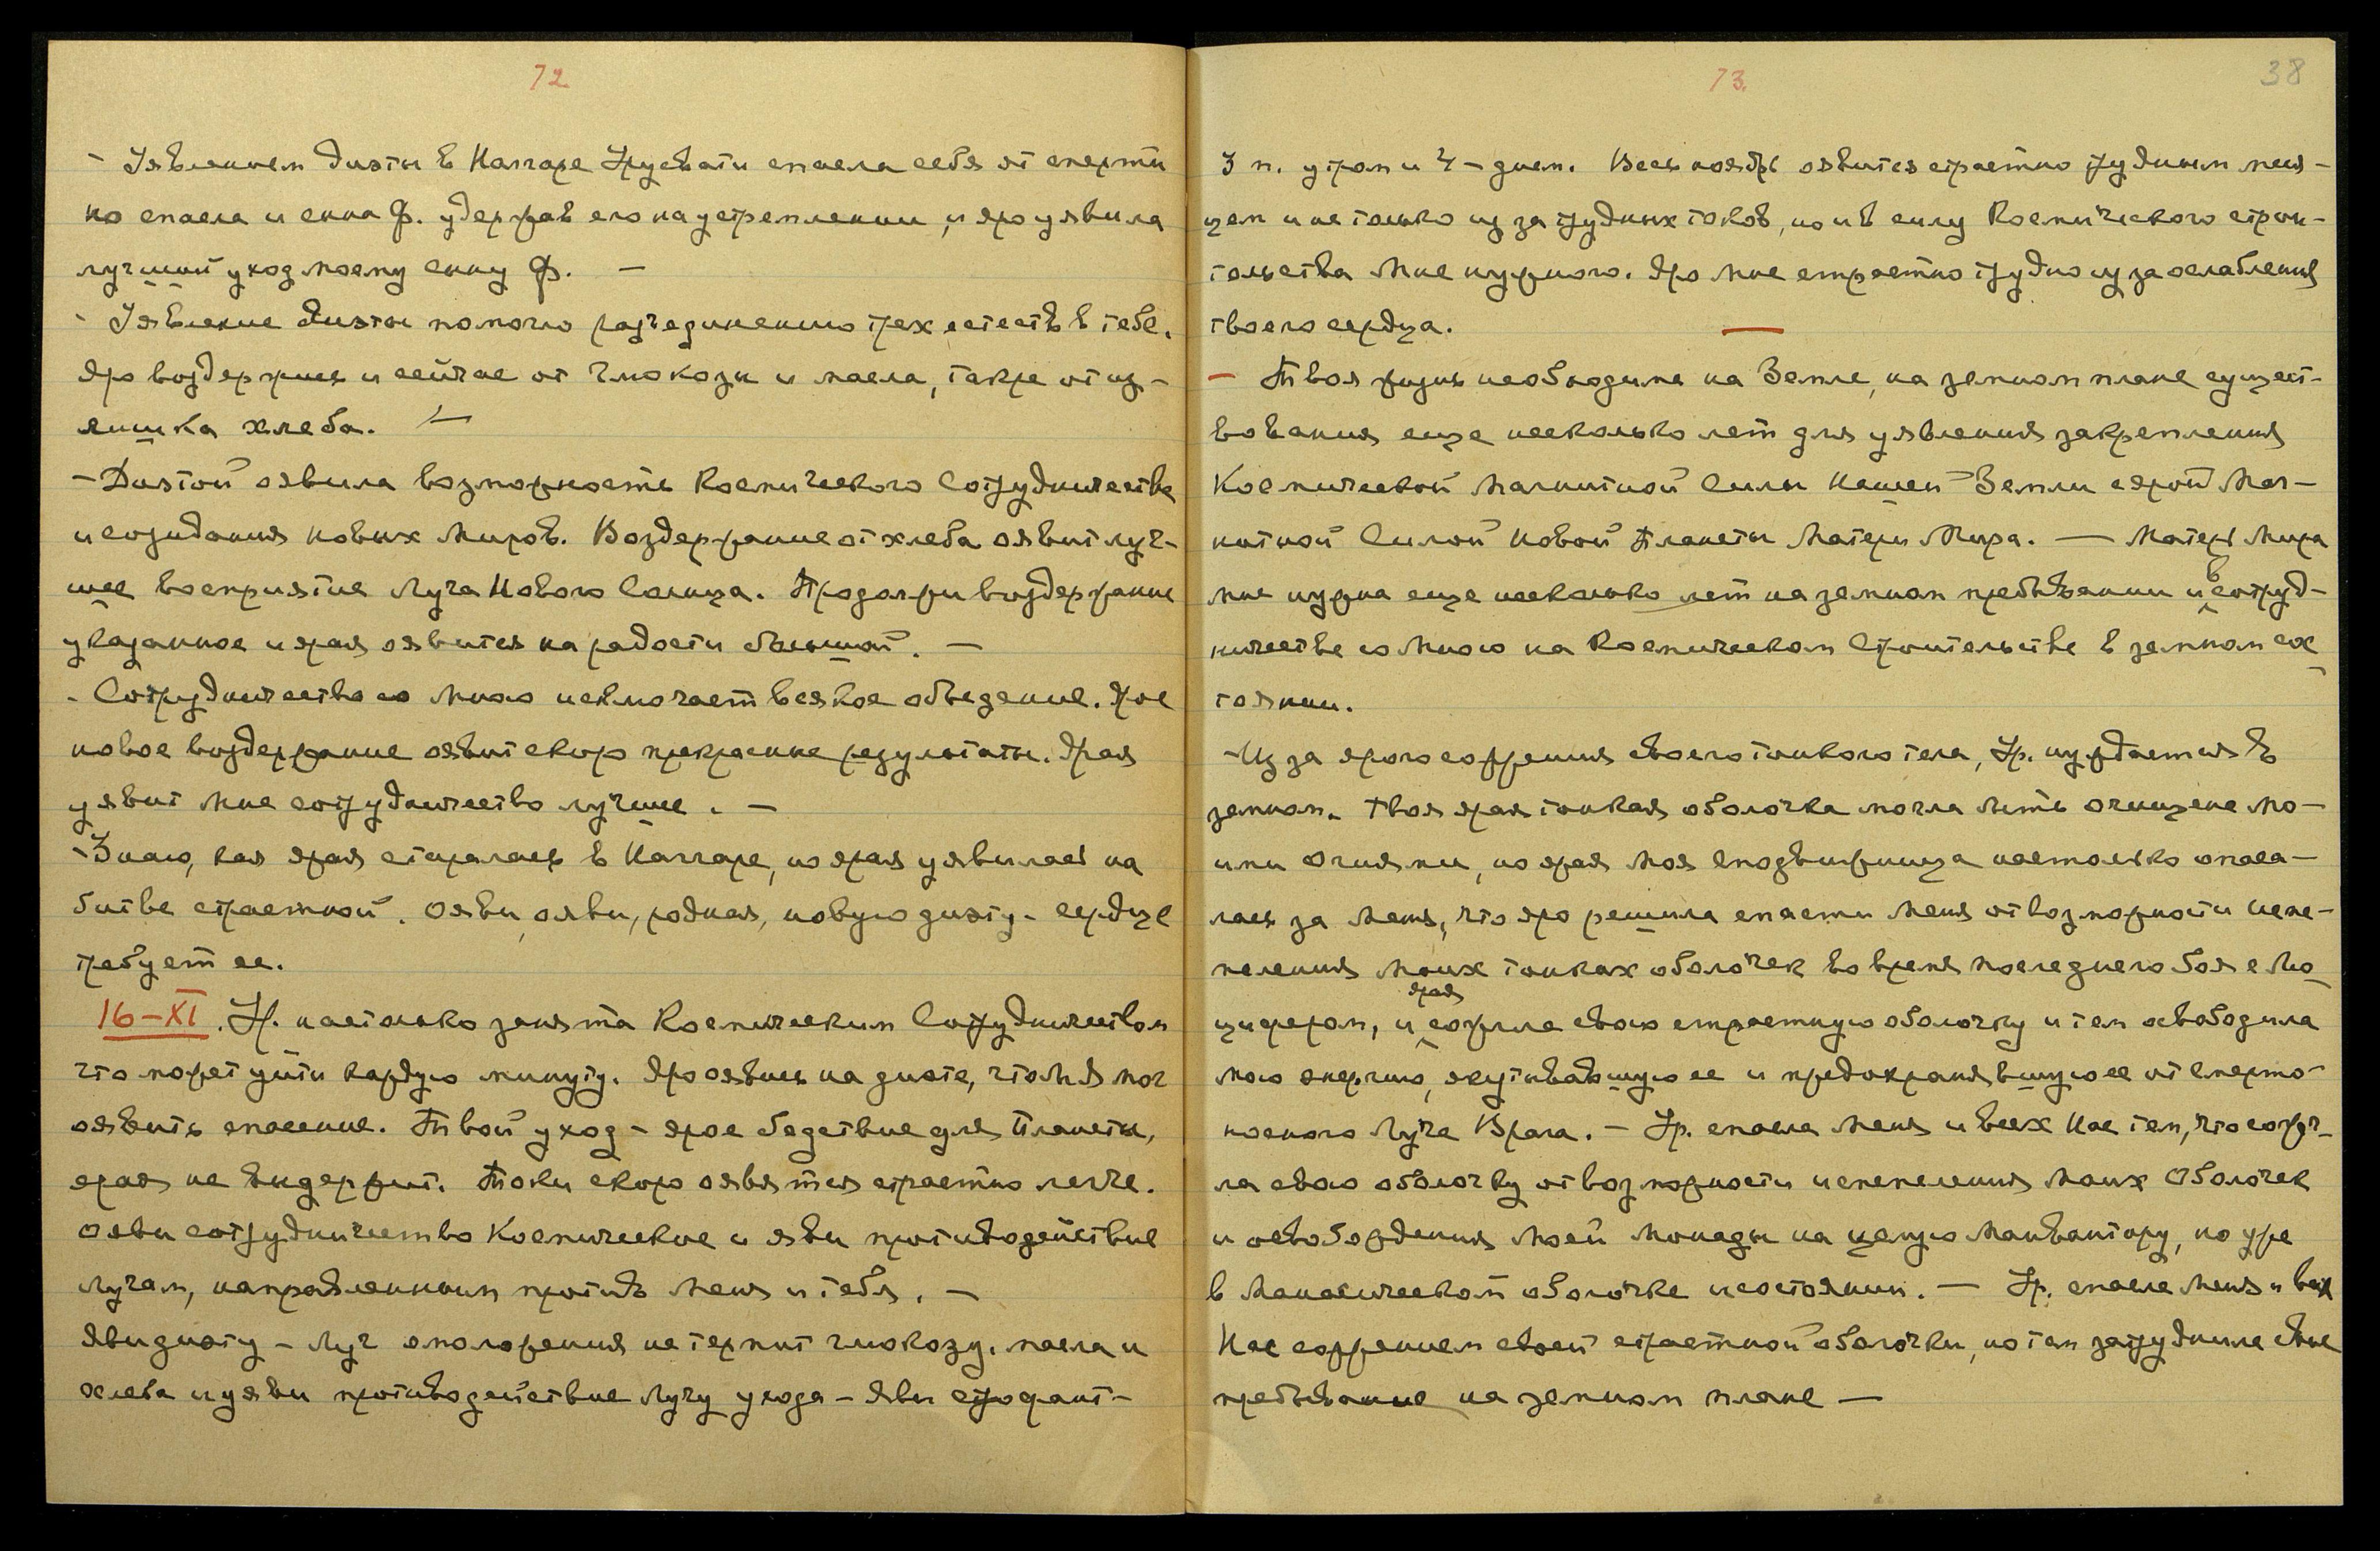 72
- Уявлением диэты в Наггаре Урусвати спасла себя от смерти
но спасла и сына Ф. удержав его на устремлении, и яро уявила
лучший уход моему сыну Ф. —
- Уявление диэты помогло разъединению трех естеств в тебе.
Яро воздержись и сейчас от глюкозы и масла, также от из-
лишка хлеба. —
- Диэтой оявила возможность Космического Сотрудничества
и созидания новых Миров. Воздержание от хлеба оявит луч-
шее восприятие Луча Нового Солнца. Продолжи воздержание
указанное и ярая оявится на радости большой. —
- Сотрудничество со Мною исключает всякое объедение. Ярое
новое воздержание оявит скоро прекрасные результаты. Ярая
уявит Мне сотрудничество лучшее. —
- Знаю, как ярая старалась в Наггаре, но ярая уявилась на
битве страстной. Ояви, ояви, родная, новую диэту - сердце
требует ее.
16-XI. Ур. настолько занята Космическим Сотрудничеством
что может уйти каждую минуту. Яро оявись на диэте, чтоб Я мог
оявить спасение. Твой уход - ярое бедствие для Планеты,
ярая не выдержит. Токи скоро оявятся страстно легче.
Ояви сотрудничество Космическое и яви противодействие
лучам, направленным против Меня и тебя. —
Яви диэту - Луч омоложения не терпит глюкозу, масла и
хлеба и уяви противодействие Лучу ухода - Яви строфант-
73.
38
3 п. утром и 4 - днем. Весь ноябрь оявится страстно трудным меся-
цем и не только из за трудных токов, но и в силу Космического строи-
тельства Мне нужного. Яро Мне страстно трудно из за ослабления
твоего сердца. —
- Твоя жизнь необходима на Земле, на земном плане сущест-
вования еще несколько лет для уявления закрепления
Космической Магнитной Силы Нашей Земли с ярой Маг-
нитной Силой Новой Планеты Матери Мира. — Матерь Мира
Мне нужна еще несколько лет на земном пребывании и в сотруд-
ничестве со Мною на Космическом Строительстве в земном сос
тоянии.
- Из за ярого сожжения своего тонкого тела, Ур. нуждается в
земном. Твоя ярая тонкая оболочка могла быть очищена Мо-
ими Огнями, но ярая Моя Сподвижница настолько опаса-
лась за Меня, что яро решила спасти Меня от возможности испе-
пеления Моих тонких оболочек во время последнего боя с Лю
цифером, и ярая сожгла свою страстную оболочку и тем освободила
мою энергию, окутывавшую ее и предохранявшую ее от смерто-
носного Луча Врага. — Ур. спасла Меня и всех Нас тем, что сожг-
ла свою оболочку от возможности испепеления Моих Оболочек
и освобождения Моей Монады на целую Манвантару, но уже
в Манасическом оболочке и состоянии. — Ур. спасла Меня и всех
Нас сожжением своей страстной оболочки, но тем затруднила свое
пребывание на земном плане —